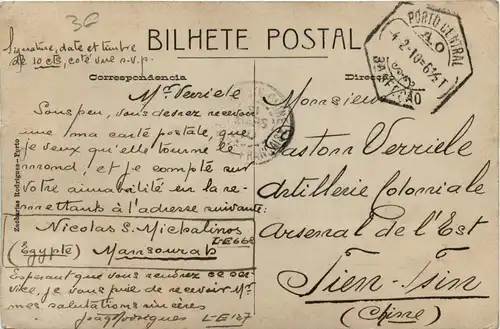 3€
Signature, date et timbre
de 10 cts, coté vue s.v.p.
BILHETE POSTAL
Correspondencia
Direcção
PORTO CENTRAL
4-2-10-6½T
3A SECÇÃO
Mr Verriele
Sous peu, vous devrez recevoir
une ma carte postale, que
je veux qu'elle tourne le
monde, et je compte sur
votre aimabilité en la re-
mettante à l'adresse suivante:
Nicolas S. Michalinos
LE668
(Egypte) Mansourah
Esperant que vous rendrez ce ser-
vice, je vous prie de recevoir Mr
mes salutations sincères
João Rodrigues LE187
Zacharias Rodrigues-Porto
Monsieur
Gaston Verriele
Artillerie Coloniale
Arsenal de l'Est
Tien-Tsin
(Chine)